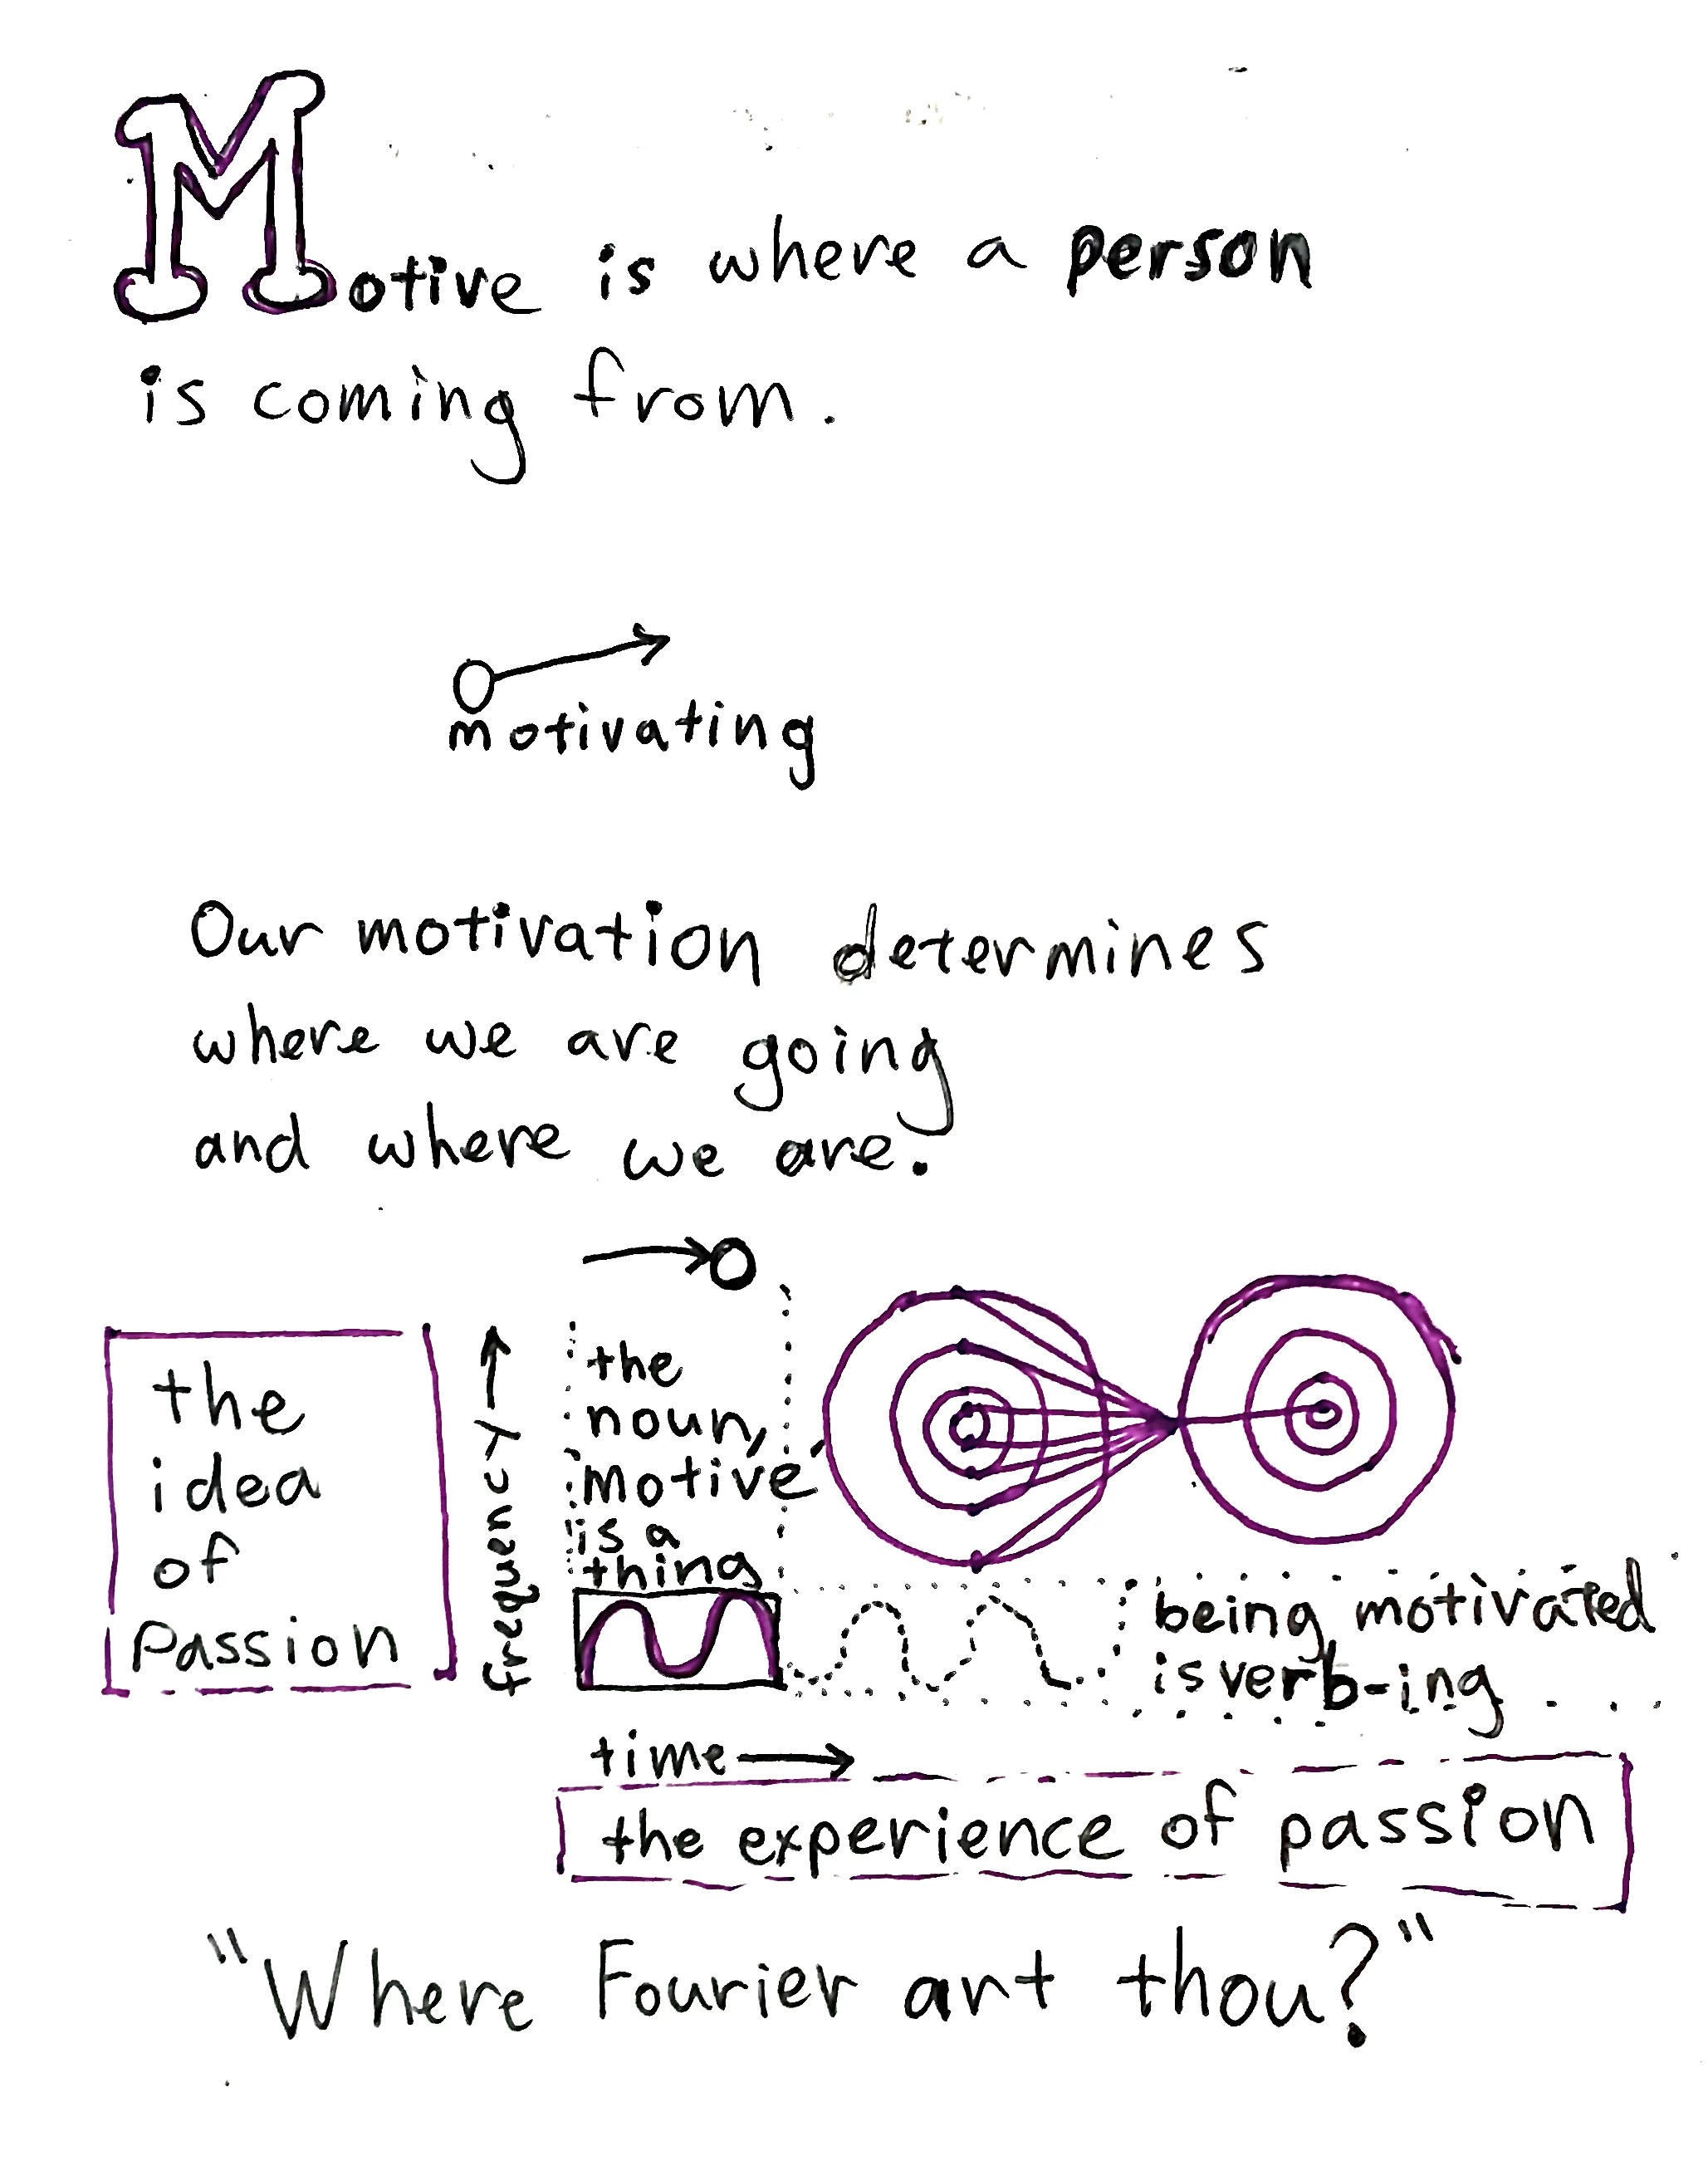 Motive is where a person
is coming from.
motivating
Our motivation determines
where we are going
and where we are.
the
idea
of
passion
frequency
the
noun,
motive
is a
thing
being motivated
is verb-ing
time
the experience of passion
"Where Fourier art thou?"